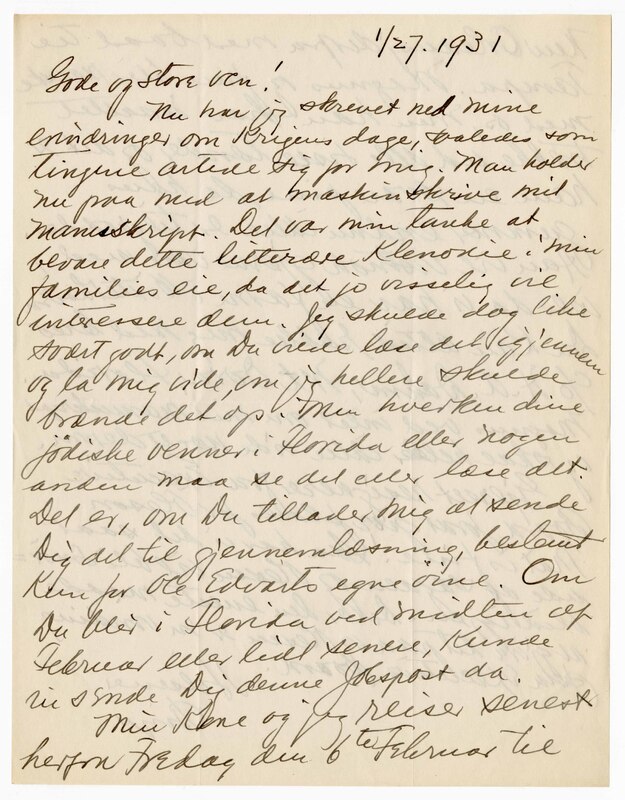 1/27. 1931
Gode og store ven!
Nu har jeg skrevet ned mine
erindringer om Krigens dage, saaledes som
tingene artede sig for mig. Man holder
nu paa med at maskinskrive mit
manuskript. Det var min tanke at
bevare dette litterære Klenodie i min
families eie, da det jo visselig vil
interessere dem. Jeg skulde dog like
svært godt, om Du vilde læse det igjennem
og la mig vide, om jeg hellere skulde
brænde det op. Men hverken dine
jødiske venner i Florida eller nogen
anden maa se det eller læse det.
Det er, om Du tillader mig at sende
Dig det til gjennemlæsning, bestemt
Kun for Ole Edvarts egne öine. Om
Du blir i Florida ved midten af
Februar eller lidt senere, Kunde
vi sende Dig denne Jobspost da.
Min Kone og jeg reiser senest
herfra Fredag den 6te Februar til